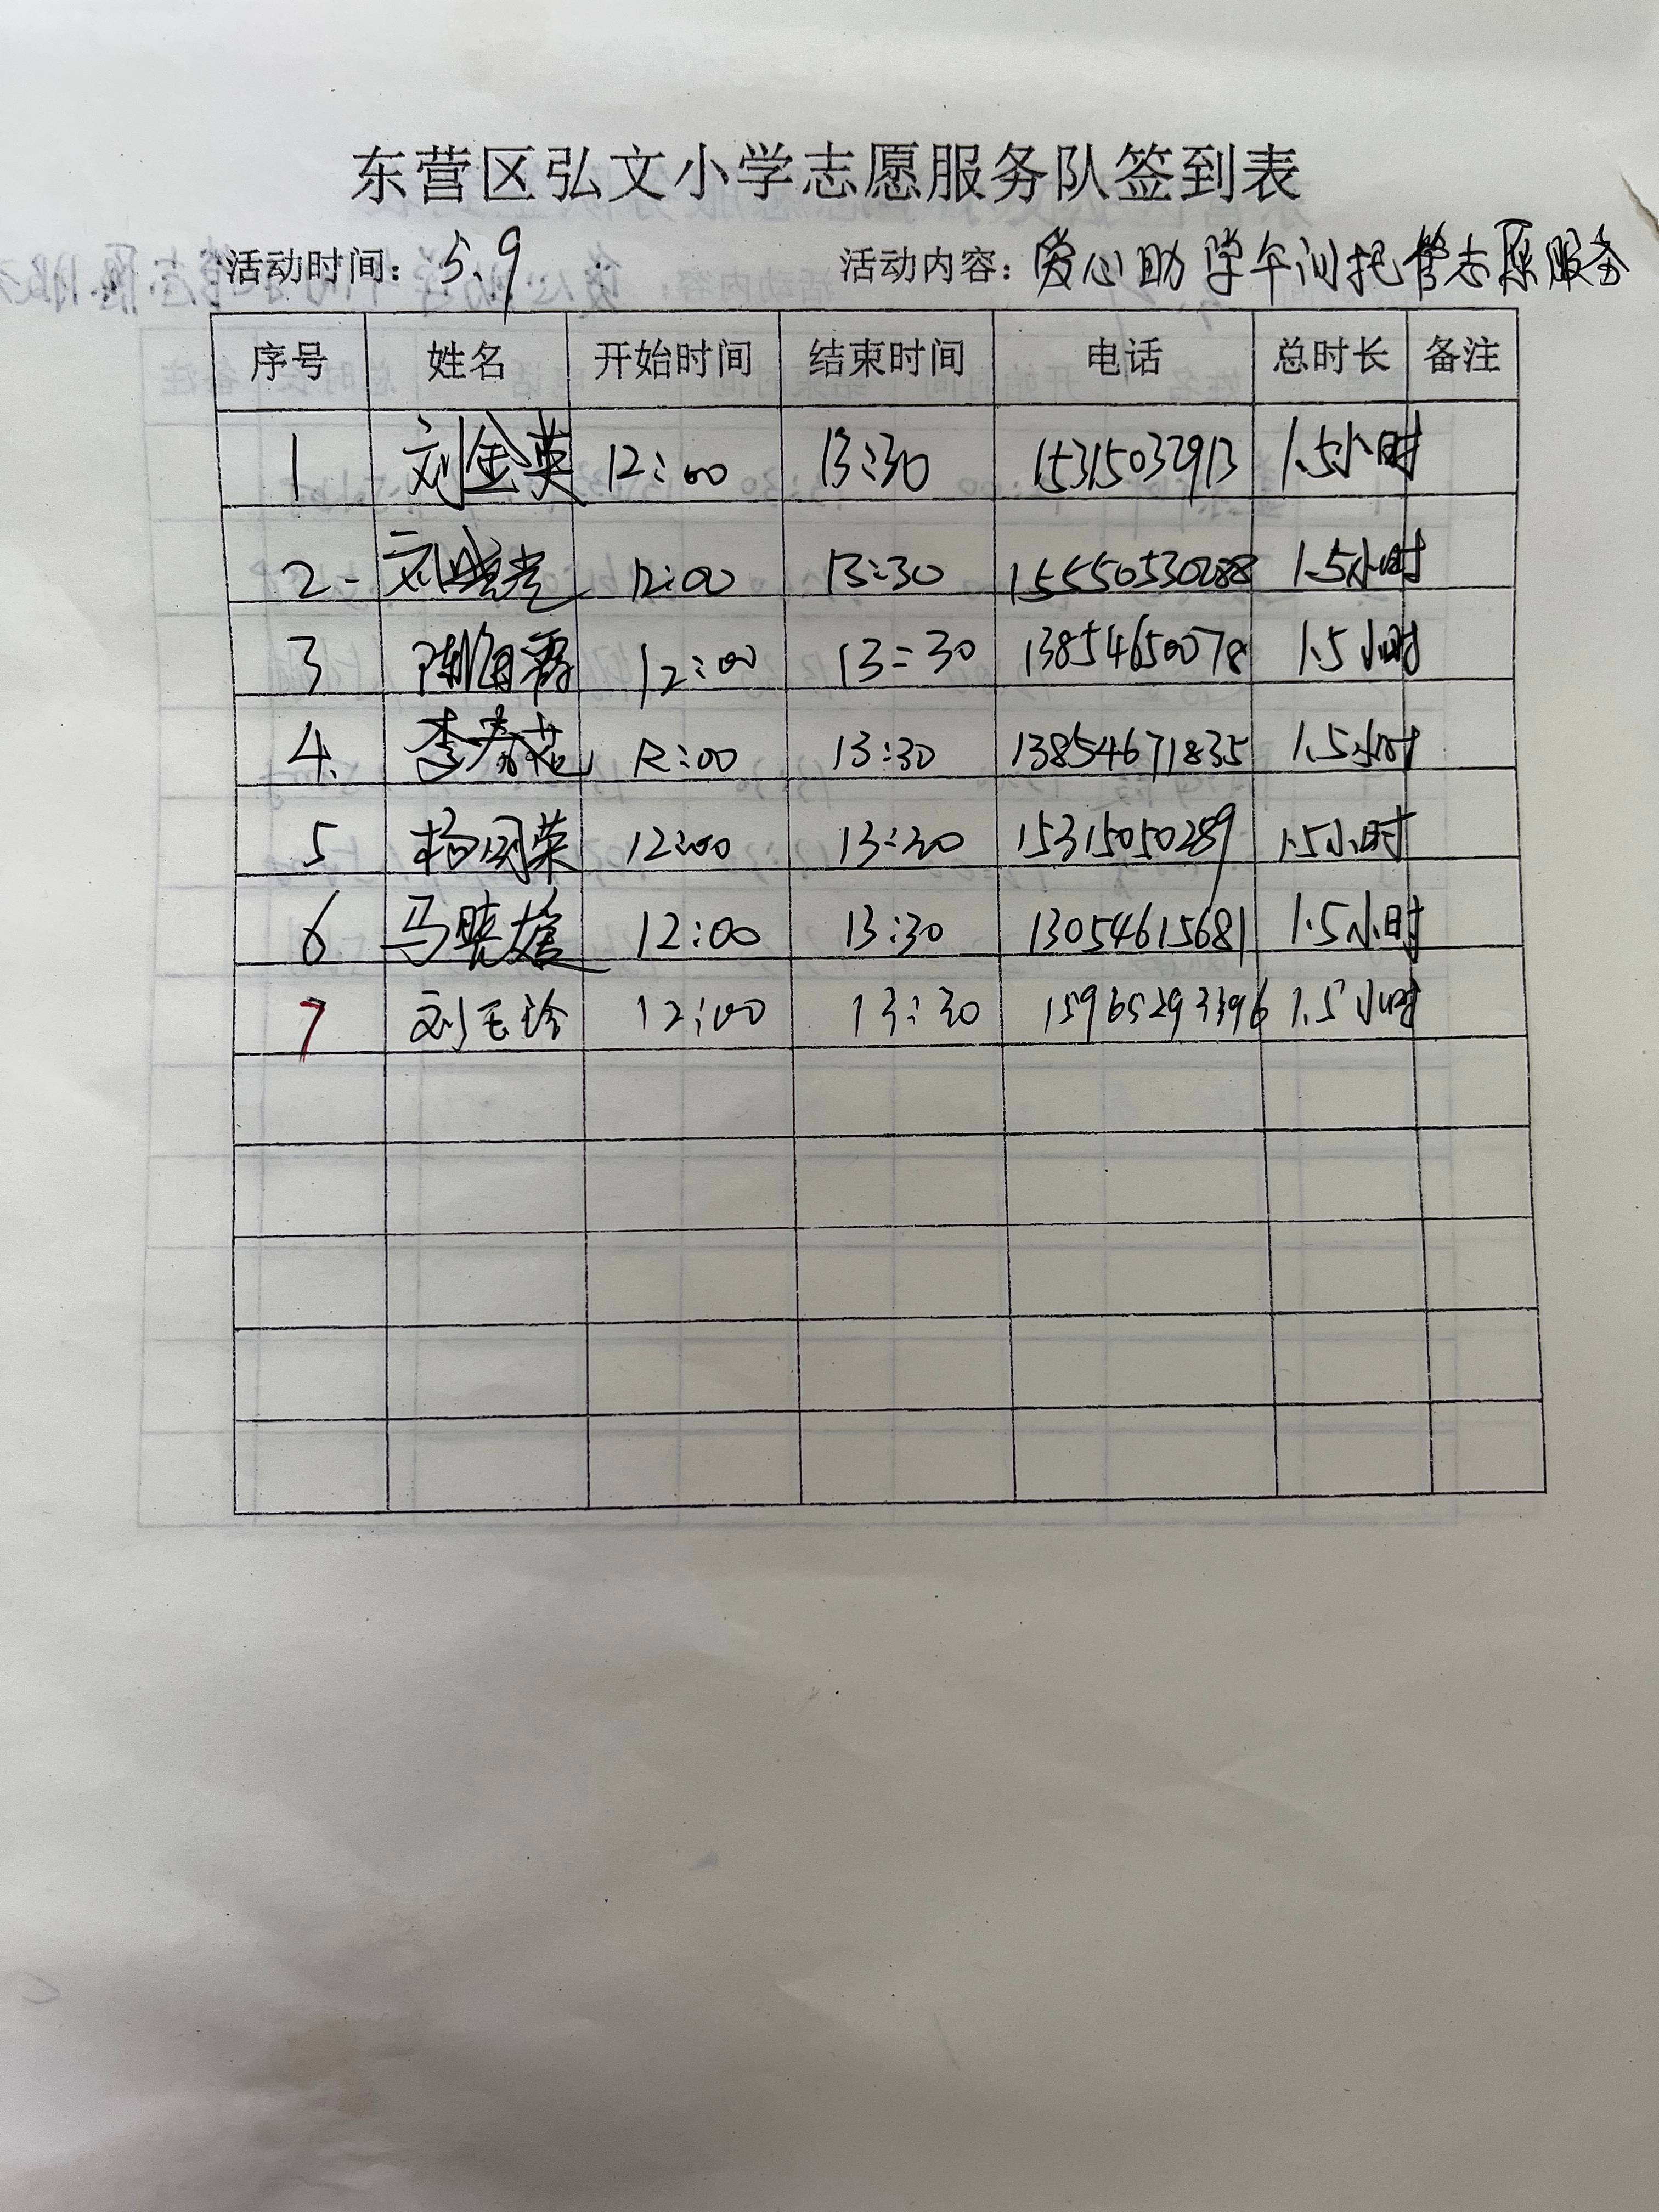 东营区弘文小学志愿服务队签到表
活动时间：5.9 活动内容：爱心助学午间把管志愿服务
序号 姓名 开始时间 结束时间 电话 总时长 备注
1 刘金英 12:00 13:30 15315032913 1.5小时
2 12:00 13:30 15550530288 1.5小时
3 12:00 13:30 13854650078 1.5小时
4. 李春花 12:00 13:30 13854671835 1.5小时
5 杨国荣 12:00 13:30 15315050289 1.5小时
6 马晓 12:00 13:30 13054615681 1.5小时
7 刘玉珍 12:00 13:30 15965293396 1.5小时